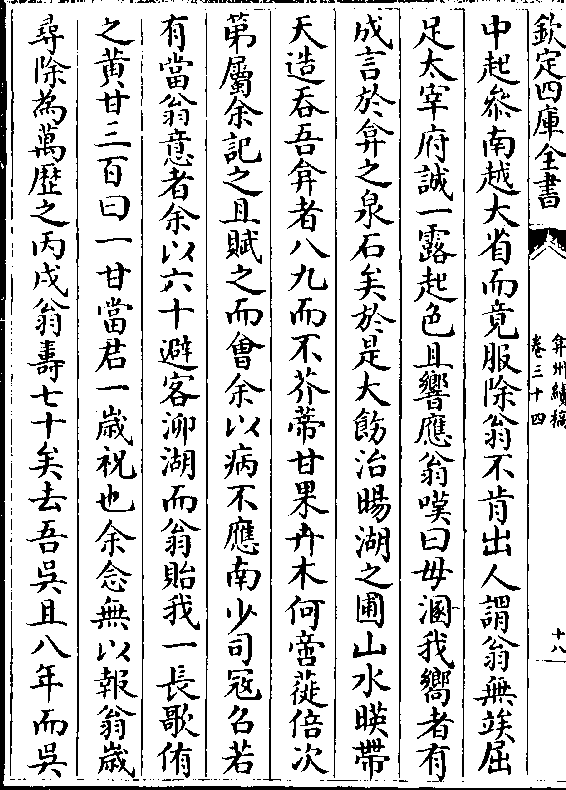 欽定四庫全書
弇州續稿
卷三十四
十八
中起㕘南越大省而竟服除翁不肯出人謂翁無竢屈
足太宰府誠一露起色且響應翁嘆曰毋溷我嚮者有
成言於弇之泉石矣於是大飭治暘湖之圃山水暎帶
天造吞吾弇者八九而不芥蔕甘果卉木何啻蓰倍次
第屬余記之且賦之而會余以病不應南少司寇召若
有當翁意者余以六十避客泖湖而翁貽我一長歌侑
之黄甘三百曰一甘當君一歳祝也余念無以報翁歳
尋除為萬歴之丙戌翁壽七十矣去吾吳且八年而吳